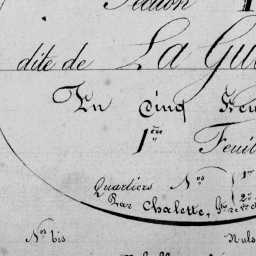 Section
dite de La Gu
En Cinq Feu
1ère Feuil
Quartiers Nos 1er
Par Chalette, 2e
Nos bis Nuls